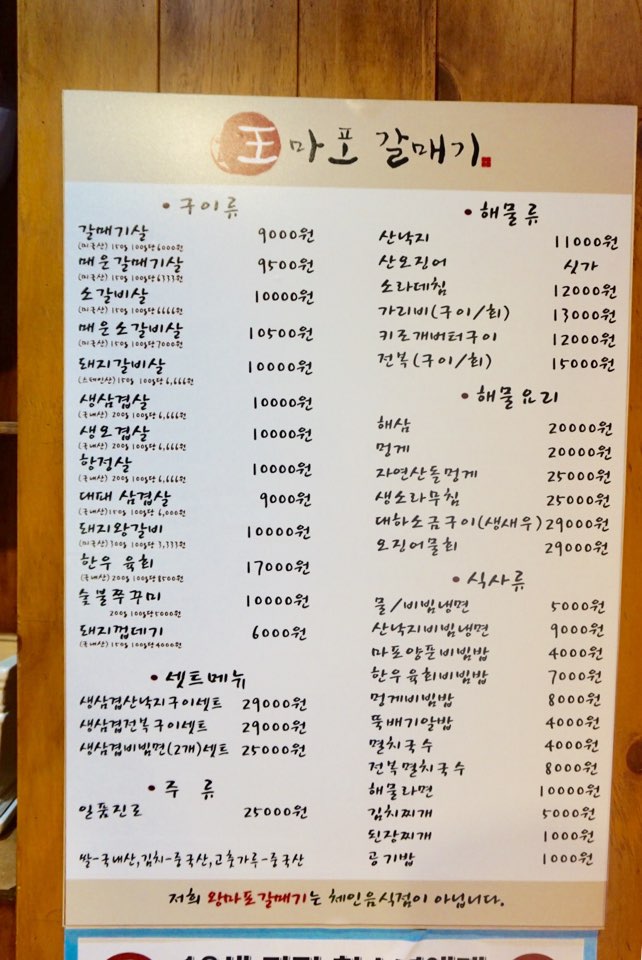 王마포 갈매기
• 구이류
갈매기살 9000원
(미국산) 150g 100g당 6000원
매운갈매기살 9500원
(미국산) 150g 100g당 6333원
소갈비살 10000원
(미국산) 150g 100g당 6666원
매운소갈비살 10500원
(미국산) 150g 100g당 7000원
돼지갈비살 10000원
(스페인산) 150g 100g당 6,666원
생삼겹살 10000원
(국내산) 200g 100g당 6,666원
생오겹살 10000원
(국내산) 200g 100g당 6,666원
항정살 10000원
(국내산) 200g 100g당 6,666원
대패 삼겹살 9000원
(국내산) 150g 100g당 6,000원
돼지왕갈비 10000원
(미국산) 300g 100g당 3,333원
한우 육회 17000원
(국내산) 200g 100g당 8500원
숯불쭈꾸미 10000원
200g 100g당 5000원
돼지껍데기 6000원
(국내산) 150g 100g당 4000원
• 셋트메뉴
생삼겹산낙지구이세트 29000원
생삼겹전복구이세트 29000원
생삼겹비빔면(2개)셋트 25000원
• 주 류
일품진로 25000원
쌀-국내산,김치-중국산,고춧가루-중국산
• 해물류
산낙지 11000원
산오징어 싯가
소라데침 12000원
가리비(구이/회) 13000원
키조개버터구이 12000원
전복(구이/회) 15000원
• 해물요리
해삼 20000원
멍게 20000원
자연산돌멍게 25000원
생소라무침 25000원
대하소금구이(생새우) 29000원
오징어물회 29000원
• 식사류
물/비빔냉면 5000원
산낙지비빔냉면 9000원
마포양푼비빔밥 4000원
한우육회비빔밥 7000원
멍게비빔밥 8000원
뚝배기알밥 4000원
멸치국수 4000원
전복멸치국수 8000원
해물라면 10000원
김치찌개 5000원
된장찌개 1000원
공기밥 1000원
저희 왕마포갈매기는 체인음식점이 아닙니다.